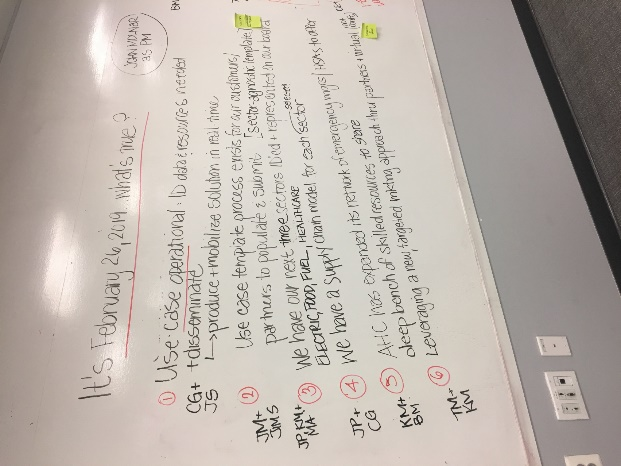 It's February 26, 2019. What's true?
AS PM
① Use-case operational: ID data & resources needed
CG+ JS
+ disseminate
↳ produce + mobilize solution in real time
② Use case template process exists for our customers/
JM+ JMS
partners to populate & submit [Sector-agnostic template]
③ We have our next three sectors ID'ed + represented in our board
JP, KM+ MA
ELECTRIC, FOOD, FUEL, HEALTHCARE
④ We have a Supply Chain model for each sector
JP+ CG
⑤ AHC has expanded its network of emergency mgrs/HSAs to offer
KM+ BM
deep bench of skilled resources to share
⑥ Leveraging a new, targeted mkting approach thru partners + virtual
TM+ KM